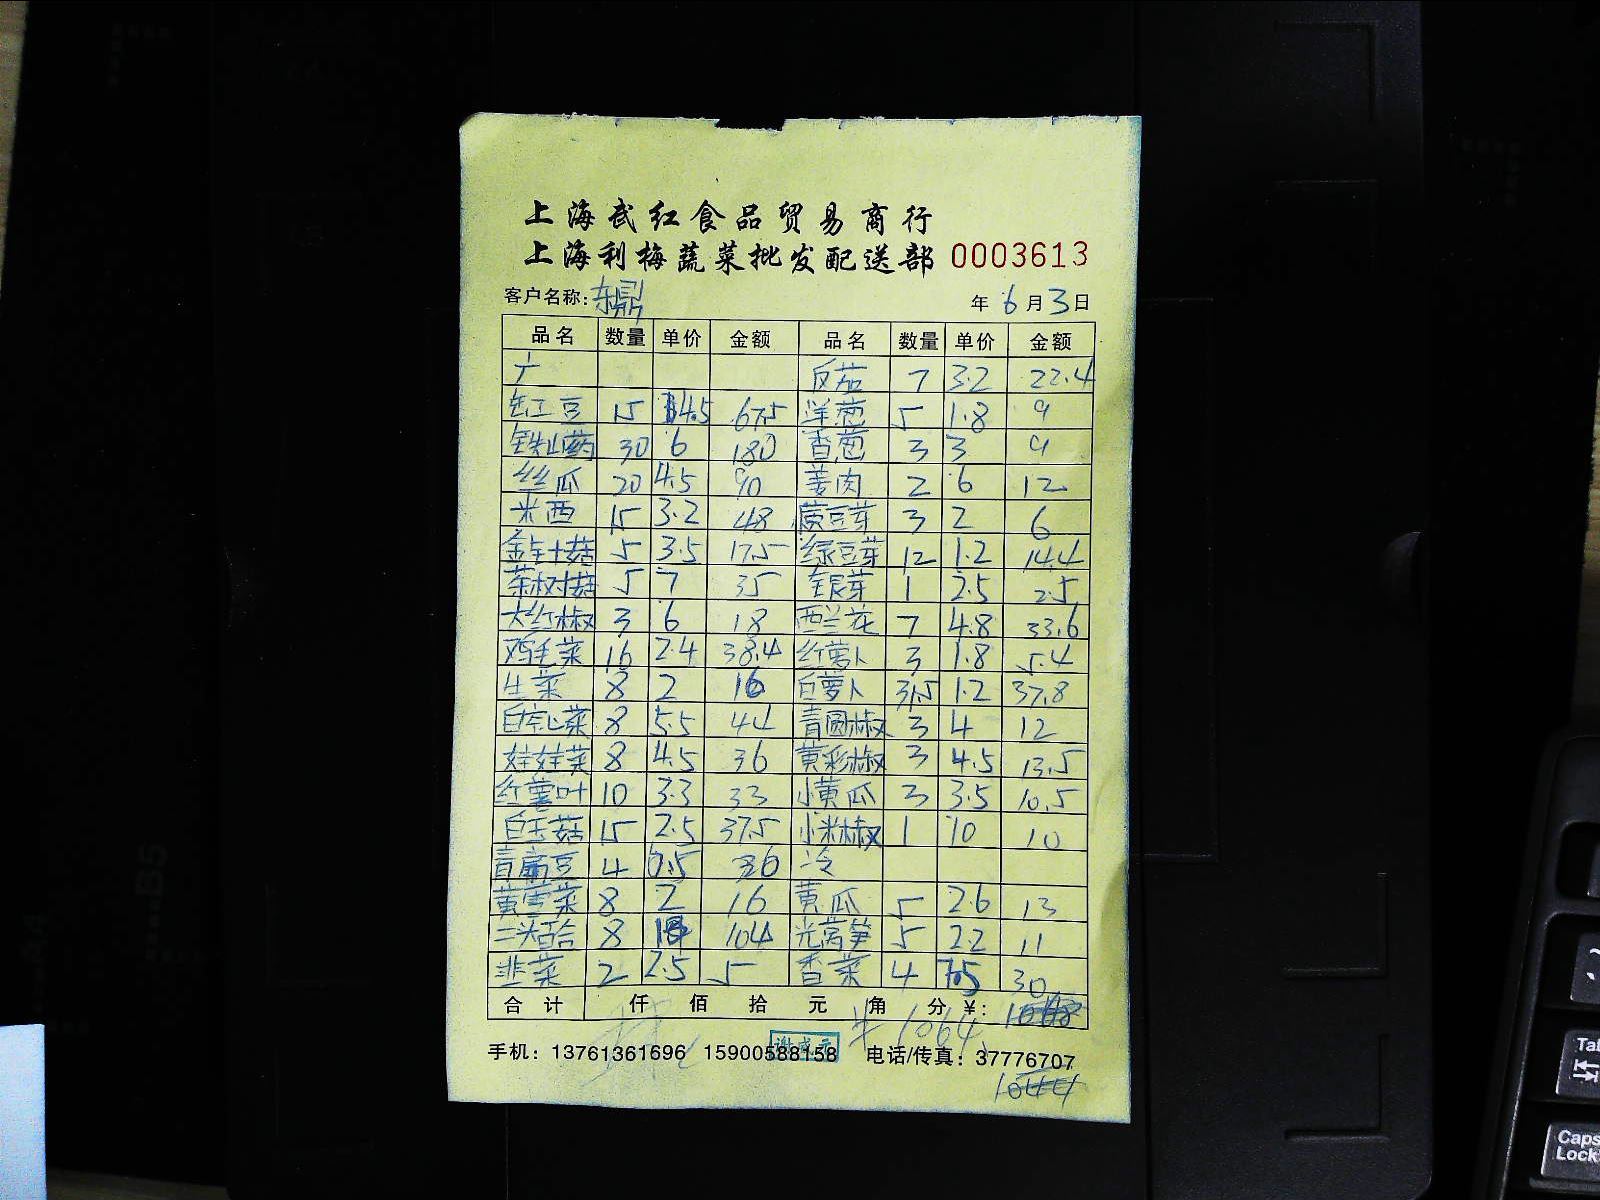 上海武红食品贸易商行
上海利梅蔬菜批发配送部 0003613
客户名称: 东鼎 年 6 月 3 日
品名 数量 单价 金额 品名 数量 单价 金额
反茄 7 3.2 22.4
缸豆 15 4.5 67.5 洋葱 5 1.8 9
铁山药 30 6 180 香葱 3 3 9
丝瓜 20 4.5 90 姜肉 2 6 12
米西 15 3.2 48 黄豆芽 3 2 6
金针菇 5 3.5 17.5 绿豆芽 12 1.2 14.4
茶树菇 5 7 35 银芽 1 2.5 2.5
大红椒 3 6 18 西兰花 7 4.8 33.6
鸡毛菜 16 2.4 38.4 红萝卜 3 1.8 5.4
生菜 8 2 16 白萝卜 31.5 1.2 37.8
白空心菜 8 5.5 44 青圆椒 3 4 12
娃娃菜 8 4.5 36 黄彩椒 3 4.5 13.5
红薯叶 10 3.3 33 小黄瓜 3 3.5 10.5
白玉菇 15 2.5 37.5 小米椒 1 10 10
青扁豆 4 冷
黄雪菜 8 2 16 黄瓜 5 2.6 13
二头百合 8 13 104 光莴笋 5 2.2 11
韭菜 2 2.5 5 香菜 4 7.5 30
合计 仟 佰 拾 元 角 分 ¥:
1064
手机: 13761361696 15900588158 电话/传真: 37776707
1044